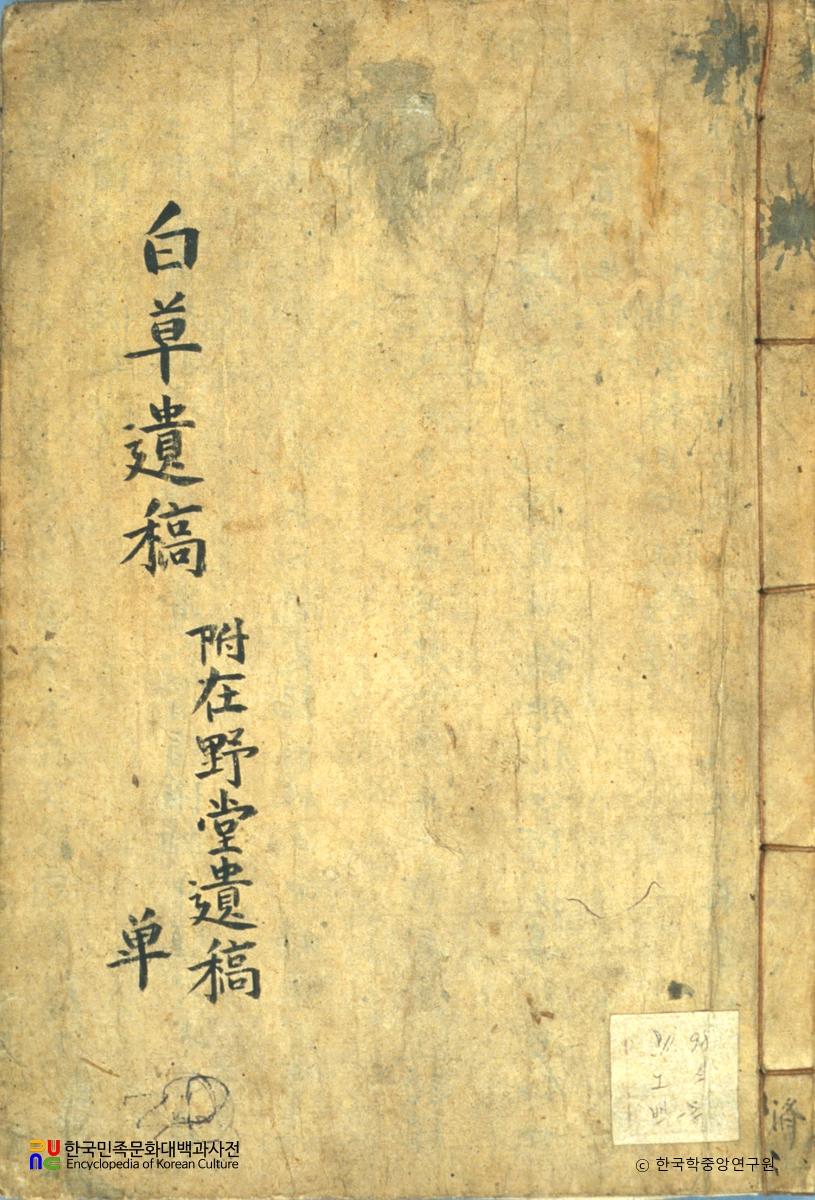 白草遺稿
附在野堂遺稿
单
濟
한국민족문화대백과사전
Encyclopedia of Korean Culture
© 한국학중앙연구원